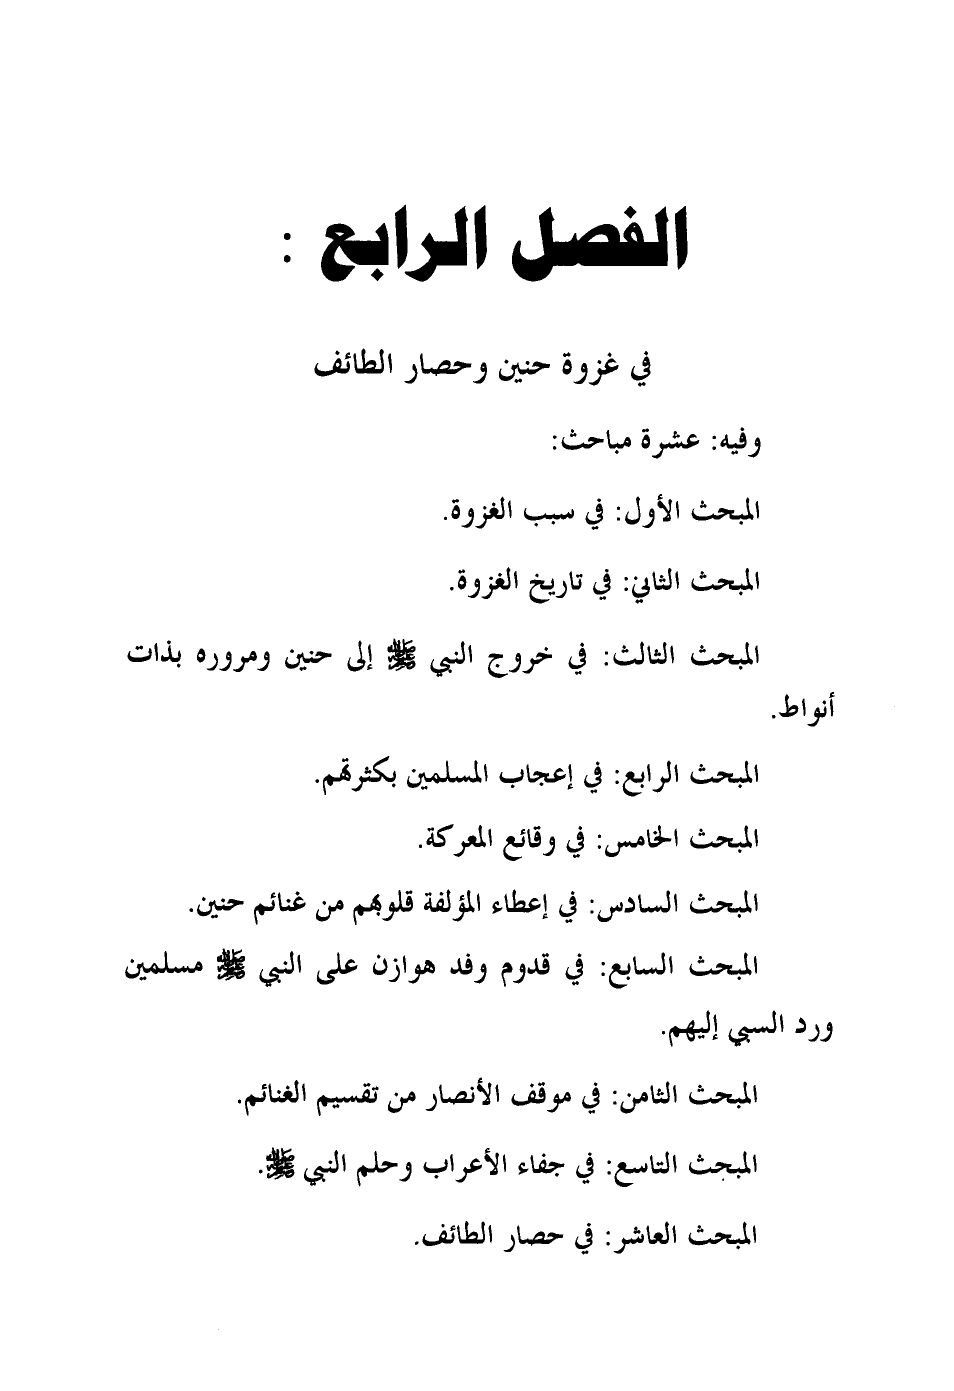 الفصل الرابع :
في غزوة حنين وحصار الطائف
وفيه: عشرة مباحث:
المبحث الأول: في سبب الغزوة.
المبحث الثاني: في تاريخ الغزوة.
المبحث الثالث: في خروج النبي ﷺ إلى حنين ومروره بذات
أنواط.
المبحث الرابع: في إعجاب المسلمين بكثرتهم.
المبحث الخامس: في وقائع المعركة.
المبحث السادس: في إعطاء المؤلفة قلوبهم من غنائم حنين.
المبحث السابع: في قدوم وفد هوازن على النبي ﷺ مسلمين
ورد السبي إليهم.
المبحث الثامن: في موقف الأنصار من تقسيم الغنائم.
المبحث التاسع: في جفاء الأعراب وحلم النبي ﷺ.
المبحث العاشر: في حصار الطائف.